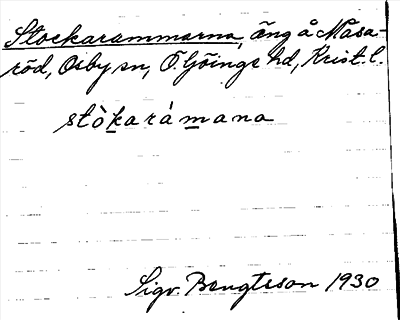 Stockarammarna, äng å Masa-
röd, Osby sn, Ö. Göinge hd, Krist. l.
stòkarámana
Sigv. Bengtsson 1930